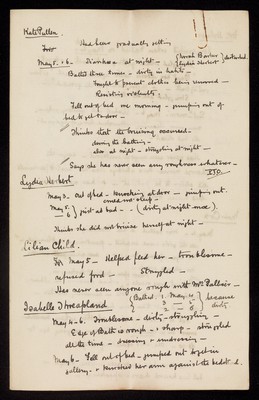 Kate Pullen.
Had been gradually getting
May 5.-6. Diarrhoea at night - (Sarah Barker) disturbed.
(Lydia Herbert)
Bathed three times - dirty in habits -
Fought to prevent clothes being removed -
Resisting violently.
Fell out of bed one morning - jumping out of
bed to get to door -
Thinks that the bruising occurred.
during the bathing -
also at night - struggling at night -
Says she has never seen any roughness whatever -
Lydia Herbert
May 3. Out of bed - knocking at door - jumping out.
May 5.
6 } just as bad - (dirty at night once)
Thinks she did not bruise herself at night -
Lilian Child.
For May 5 - Helped feed her - troublesome -
refused food - Struggled -
Has never seen anyone rough with Mrs Pallier -
Isabella Threapland
(Bathed 1. May 4 } because
3 - 5 dirty
May 4-6. Troublesome - dirty - struggling -
Edge of Bath is rough - & sharp - struggled
all the time - dressing & undressing -
May 6 - Fell out of bed - jumped out to get in
gallery. & knocked her arm against the bedst.d.